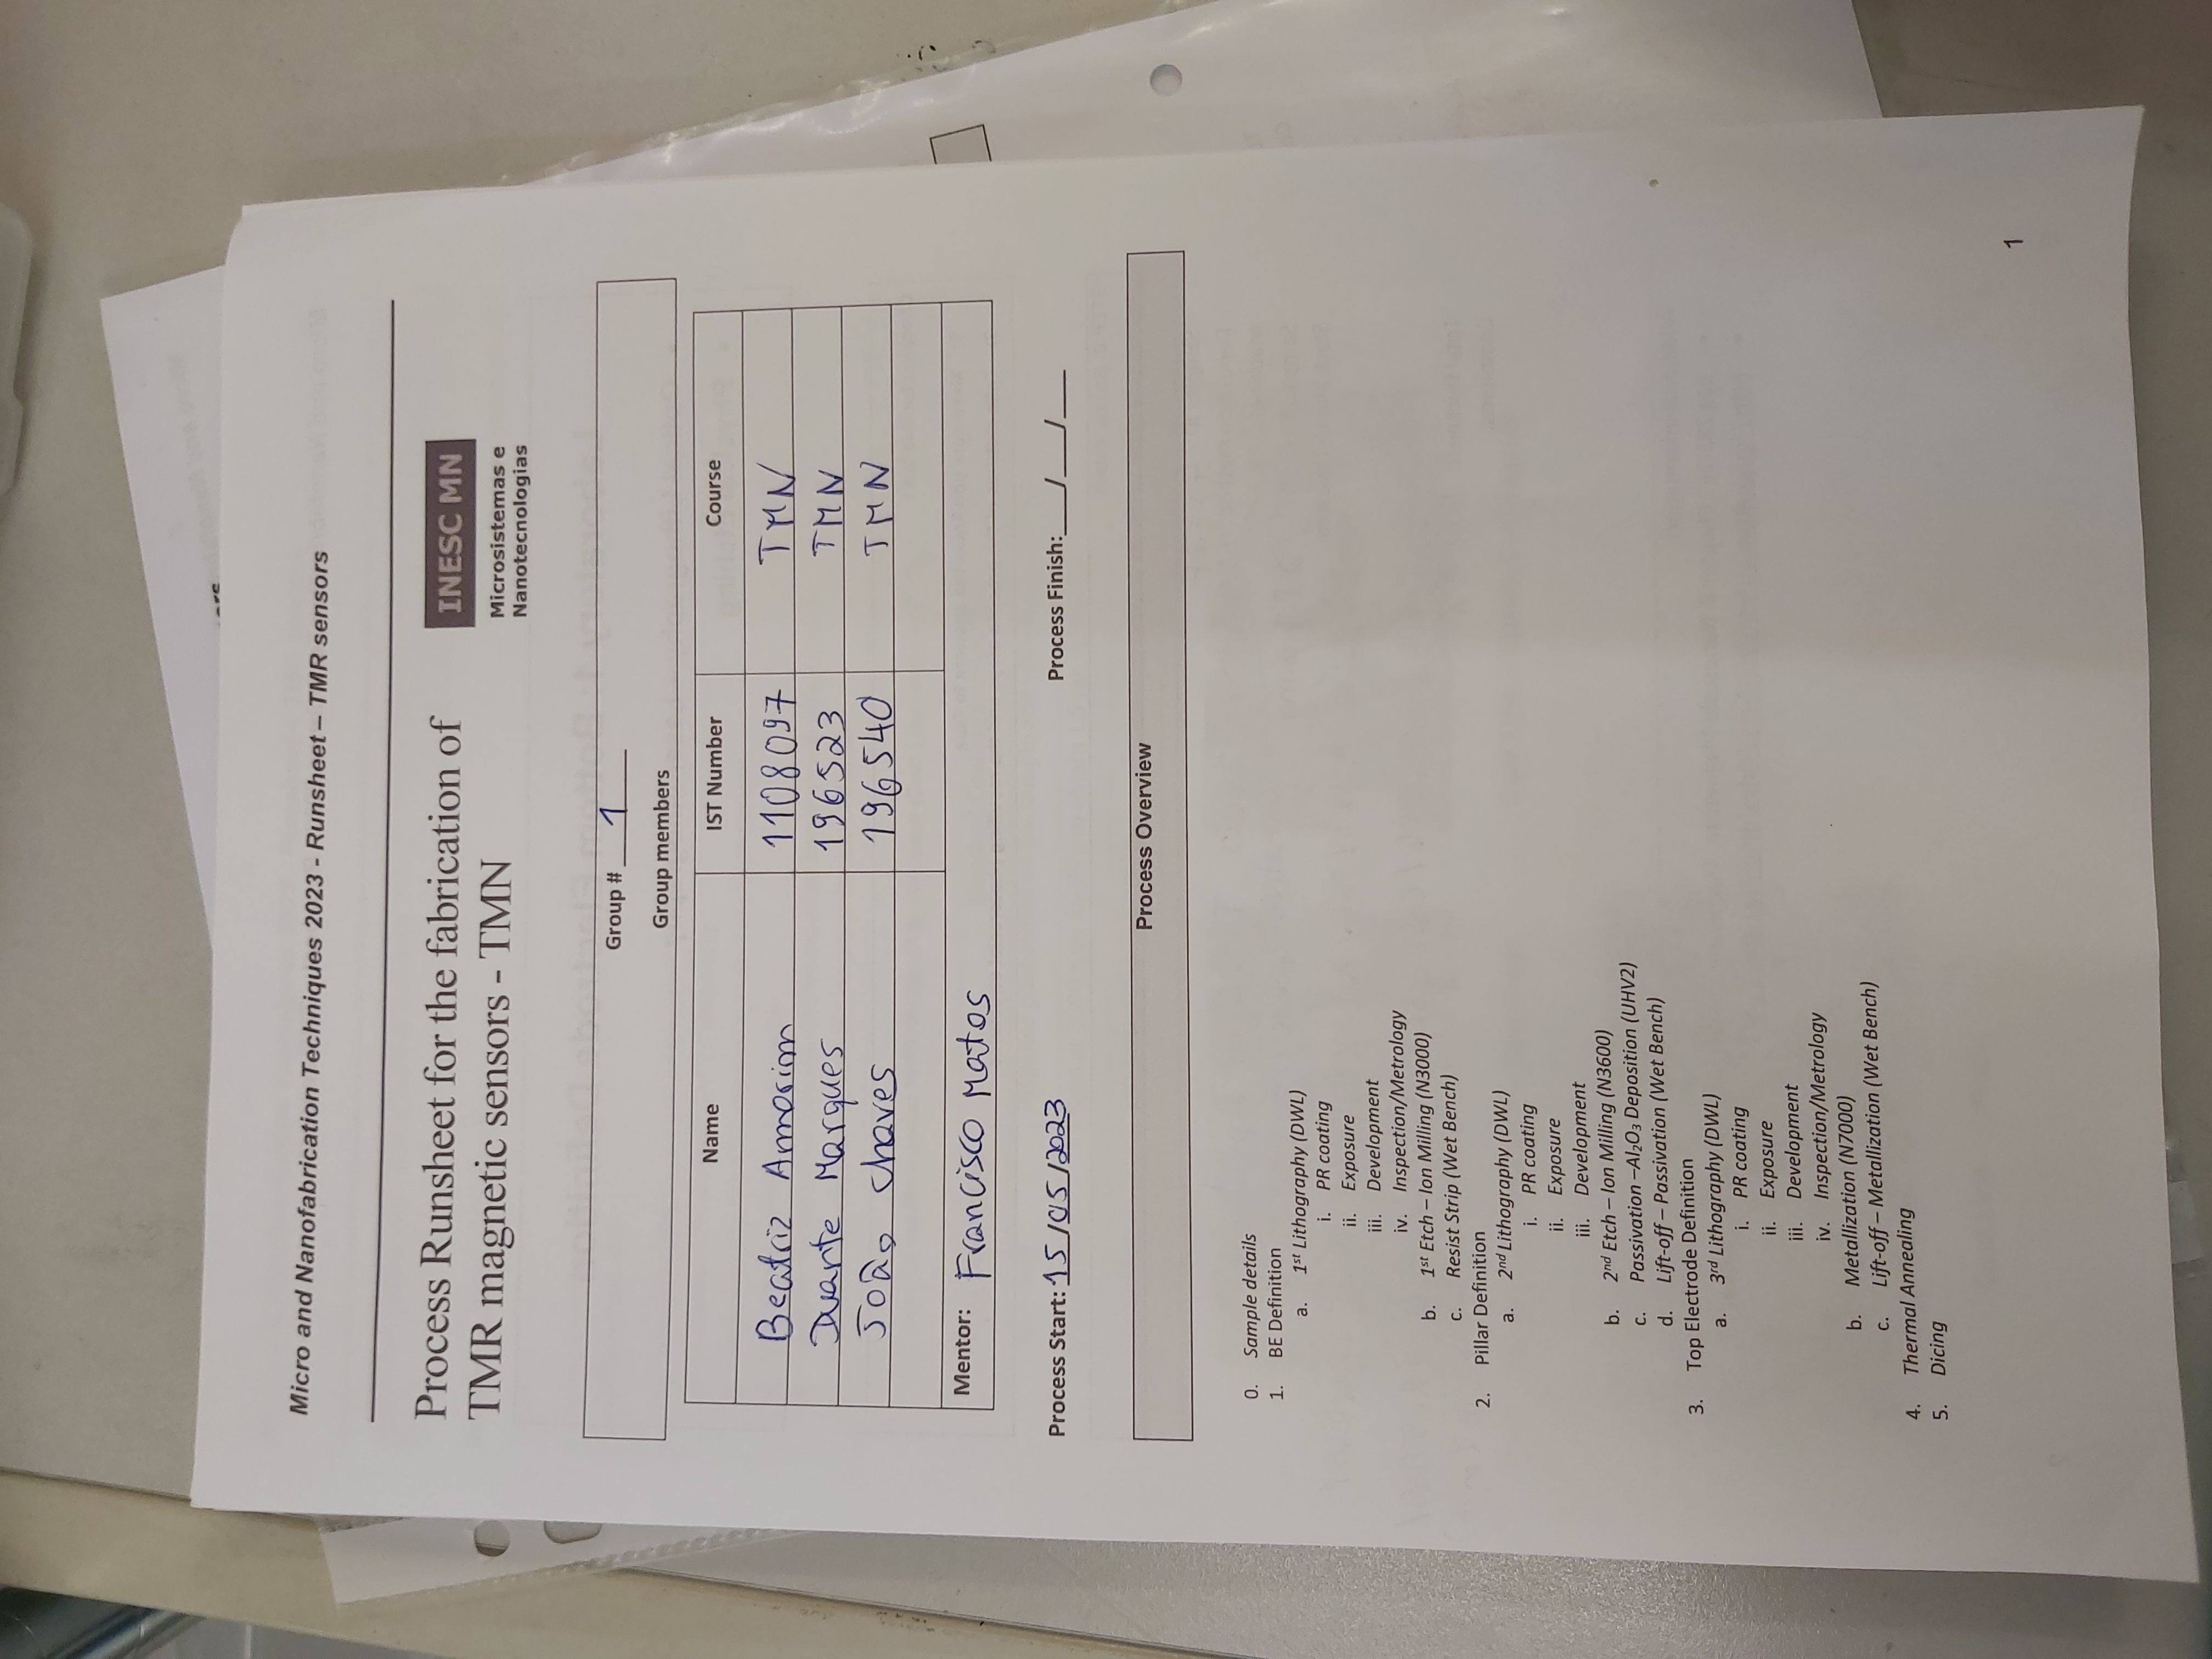 Micro and Nanofabrication Techniques 2023 - Runsheet – TMR sensors
Process Runsheet for the fabrication of
TMR magnetic sensors - TMN
INESC MN
Microsistemas e
Nanotecnologias
Group # 1
Group members
Name IST Number Course
Beatriz Amorim 1108097 TMN
Duarte Marques 196523 TMN
João Chaves 196540 TMN
Mentor: Francisco Matos
Process Start: 15/05/2023 Process Finish:___/___/___
Process Overview
0. Sample details
1. BE Definition
a. 1st Lithography (DWL)
i. PR coating
ii. Exposure
iii. Development
iv. Inspection/Metrology
b. 1st Etch – Ion Milling (N3000)
c. Resist Strip (Wet Bench)
2. Pillar Definition
a. 2nd Lithography (DWL)
i. PR coating
ii. Exposure
iii. Development
b. 2nd Etch – Ion Milling (N3600)
c. Passivation –Al2O3 Deposition (UHV2)
d. Lift-off – Passivation (Wet Bench)
3. Top Electrode Definition
a. 3rd Lithography (DWL)
i. PR coating
ii. Exposure
iii. Development
iv. Inspection/Metrology
b. Metallization (N7000)
c. Lift-off – Metallization (Wet Bench)
4. Thermal Annealing
5. Dicing
1